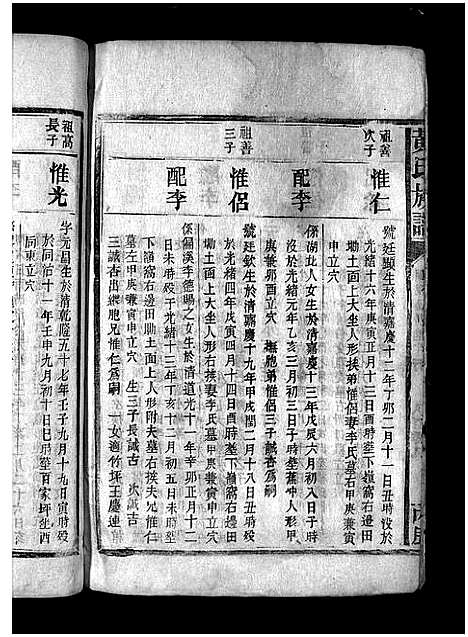 黃氏族譜
祖善次子
惟仁
號廷顯生於清嘉慶十二年丁卯二月十一日丑時歿於
光緒十六年庚寅正月十三日酉時塟下嶺窩右邊田
坳土面上大坐人形挨弟惟侶妻李氏墓右甲庚兼寅
申立穴
配李
係湖北人女生於清嘉慶十三年戊辰六月初八日子時
歿於光緒元年乙亥三月初九日子時塟 人形甲
庚兼卯酉立穴 撫胞弟惟侶三子誠杏為嗣
祖善三子
惟侶
號廷欽生於清嘉慶十九年甲戌閏二月十八日丑時歿
於光緒四年戊寅四月十四日酉時塟下嶺窩右邊田
坳土面上大坐人形右挨妻李氏墓甲庚兼寅申立穴
配李
係關溪李德賜之女生於清道光十一年辛卯正月十二
日未時歿于光緒十三年丁亥十二月初五日未時塟
下嶺窩右邊田坳土面上人形附夫墓右挨夫兄惟仁
墓左甲庚兼寅申立穴 生三子長誠古 次誠吉
三誠杏出繼胞兄惟仁為嗣 一女適竹坪王慶連
祖高長子
惟光
字元昌生於清乾隆五十七年壬子九月十九日寅時歿
於同治十一年壬申九月初十日巳時塟百家坪坐西
向東立穴